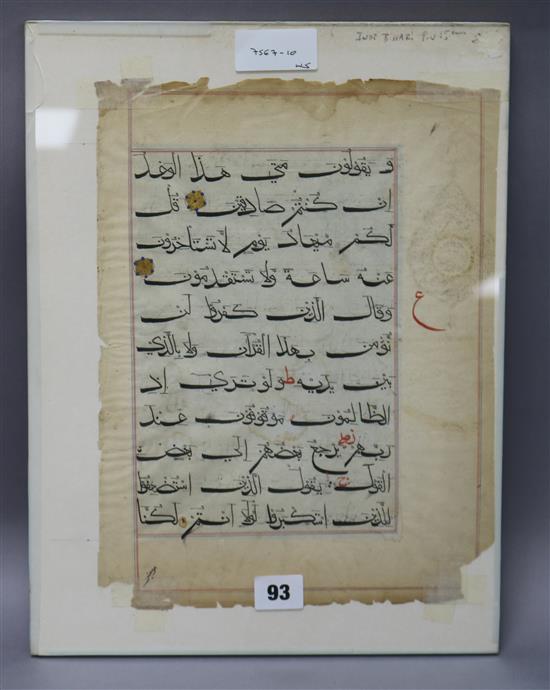 INDE BIHARI
7567-10
WS
و يقولون متى هذا الوعد
ان كنتم صادقين قل
لكم ميعاد يوم لا تستاخرون
عنه ساعة ولا تستقدمون
وقال الذين كفروا لن
نؤمن بهذا القران ولا بالذي
بين يديه ط ولو ترى اذ
الظالمون موقوفون عند
ربهم يرجع بعضهم الى بعض
القول ج يقول الذين استضعفوا
للذين استكبروا لولا انتم لكنا
ع
93